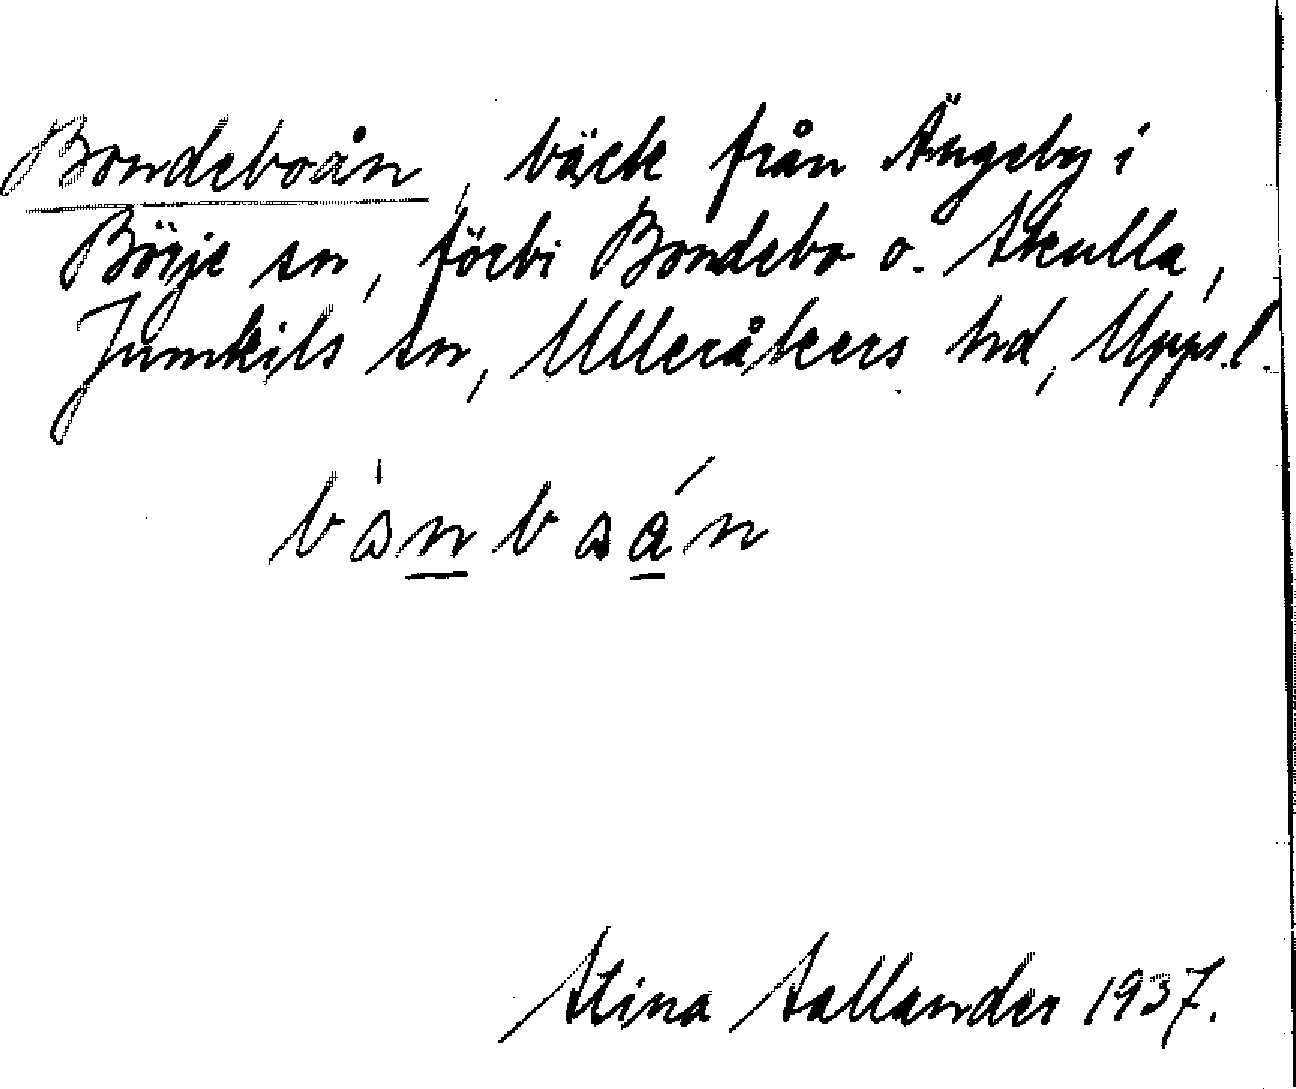 Bondeboån, bäck från Ängeby i
Börje sn, förbi Bondebo o. Skulla,
Jumkils sn, Ulleråkers hd, Uppl.
Stina Sallander 1937.